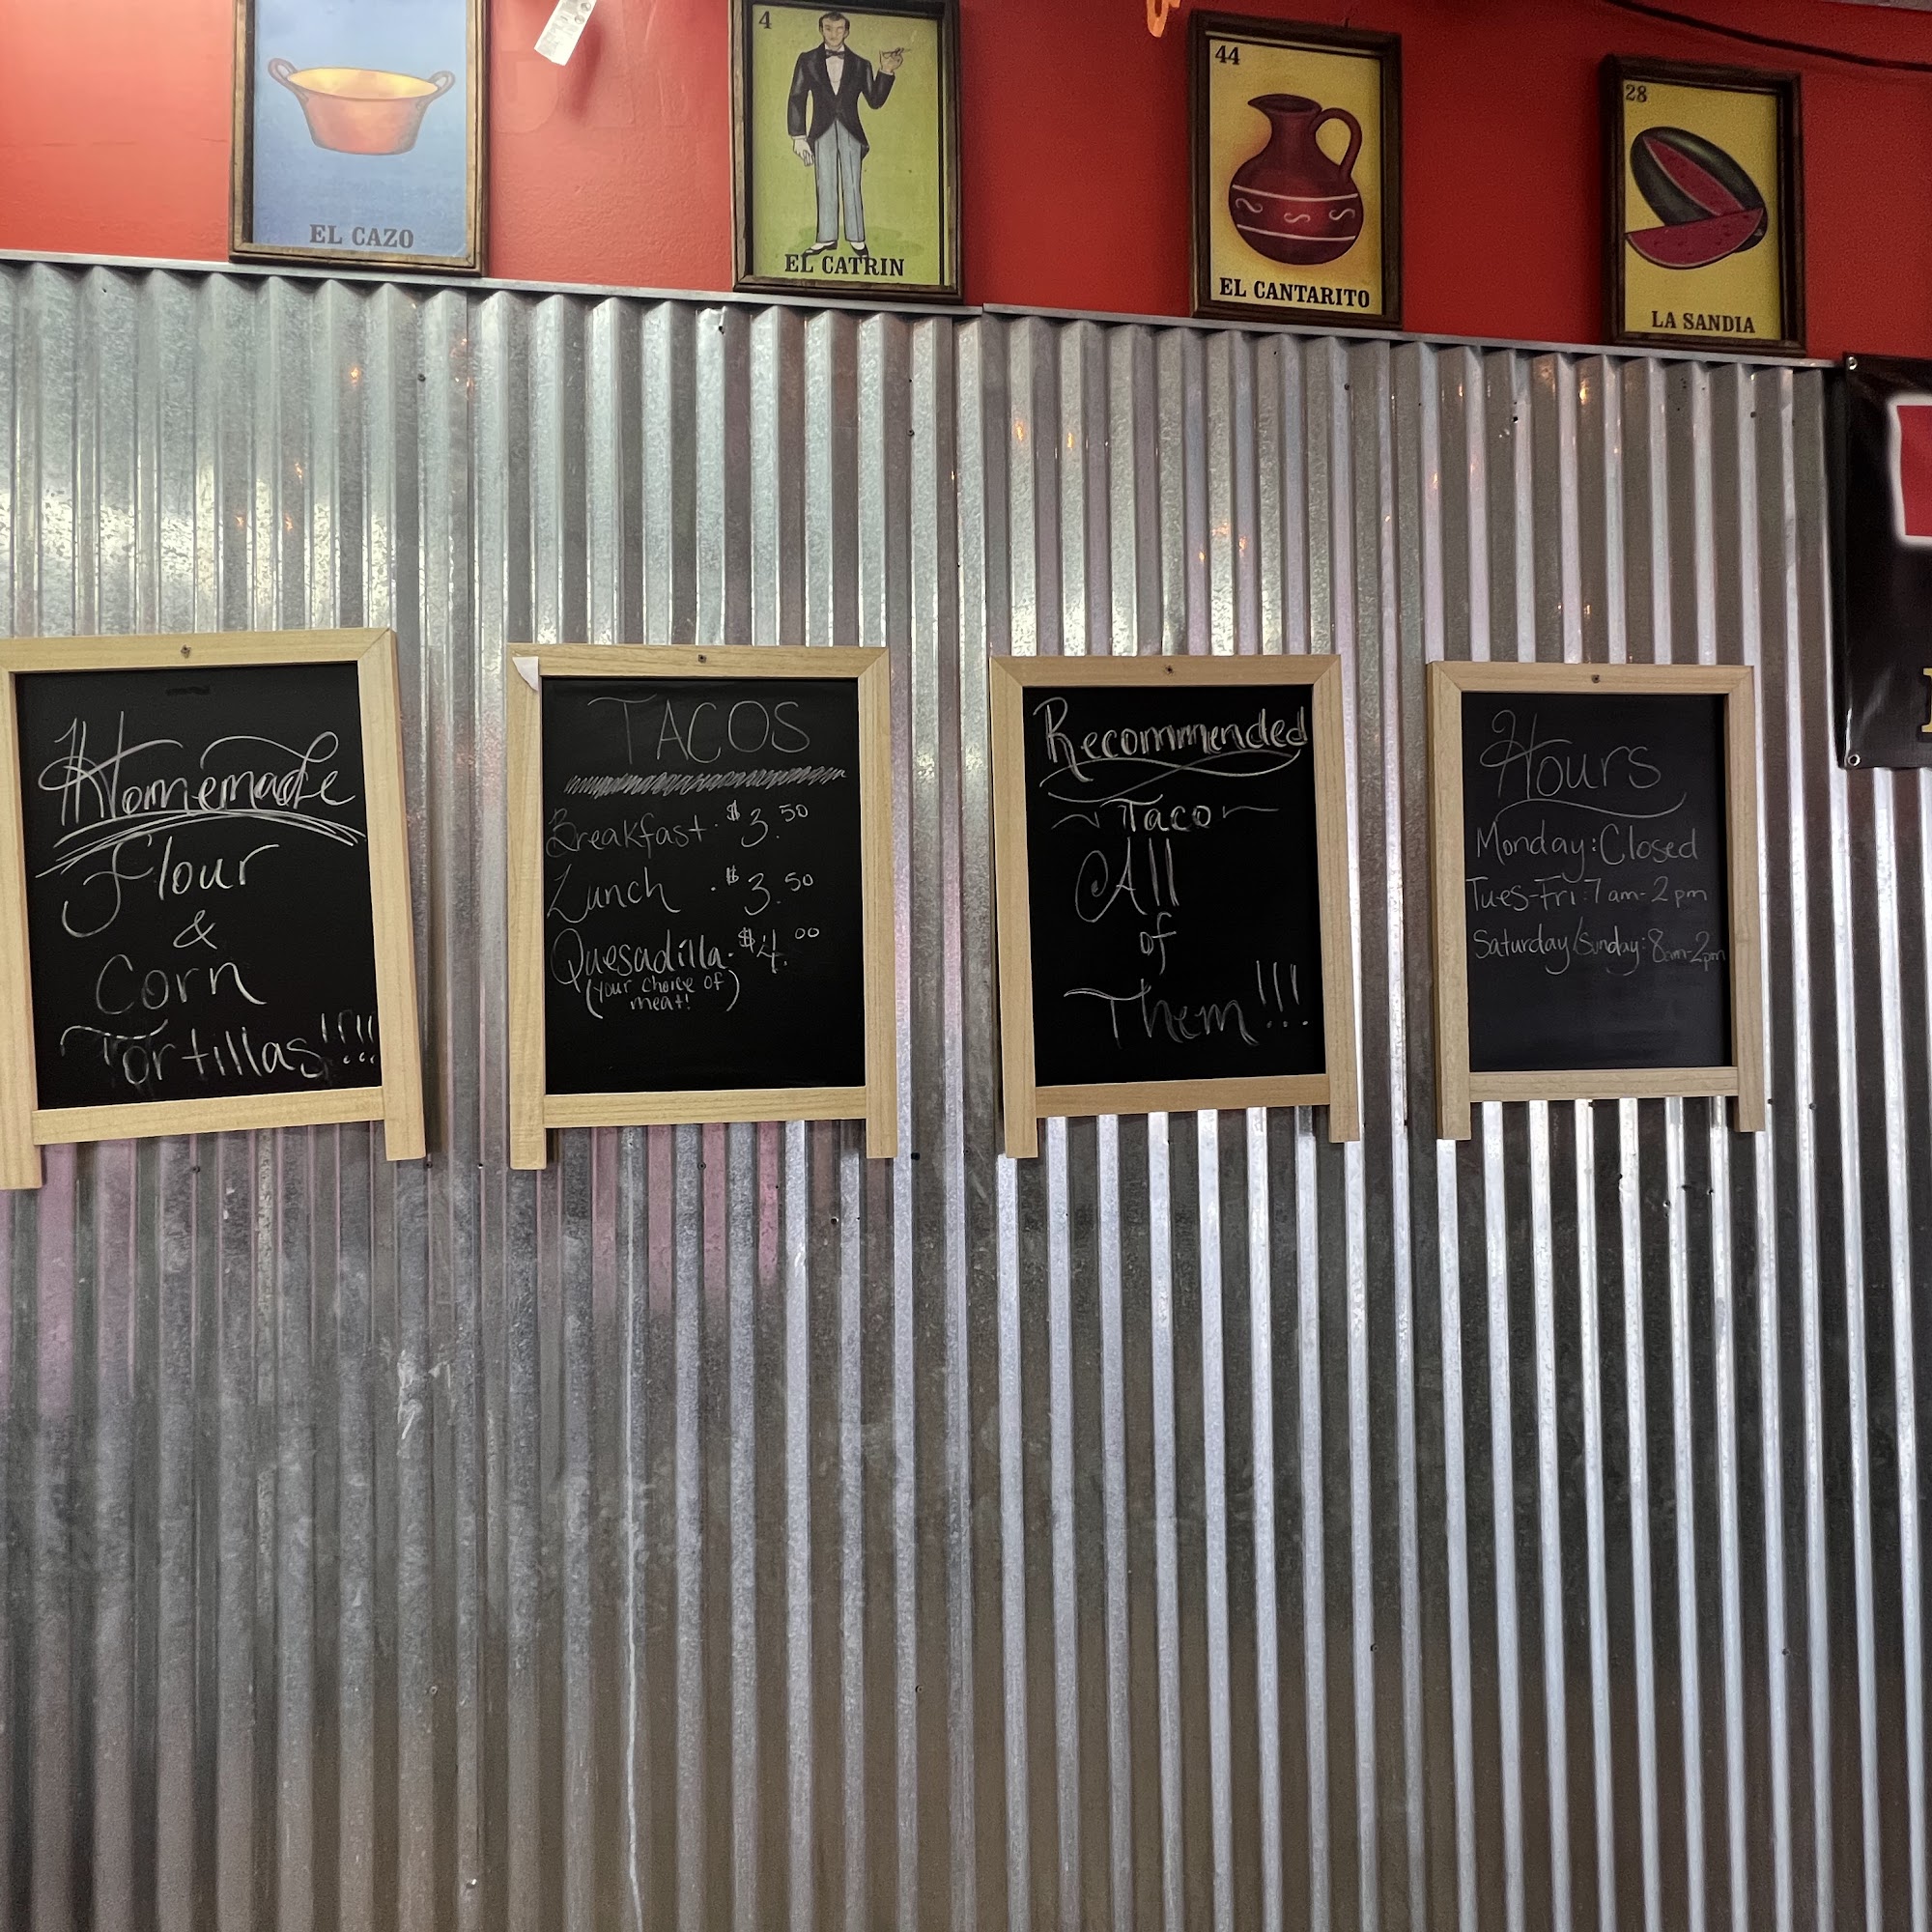 EL CAZO
4
EL CATRIN
44
EL CANTARITO
28
LA SANDIA
Homemade
Flour
&
Corn
Tortillas!!!!
TACOS
Breakfast · $3.50
Lunch · $3.50
Quesadilla · $4.00
(your choice of
meat!)
Recommended
~Taco~
All
of
Them!!!
Hours
Monday: Closed
Tues-Fri: 7am-2pm
Saturday/Sunday: 8am-2pm